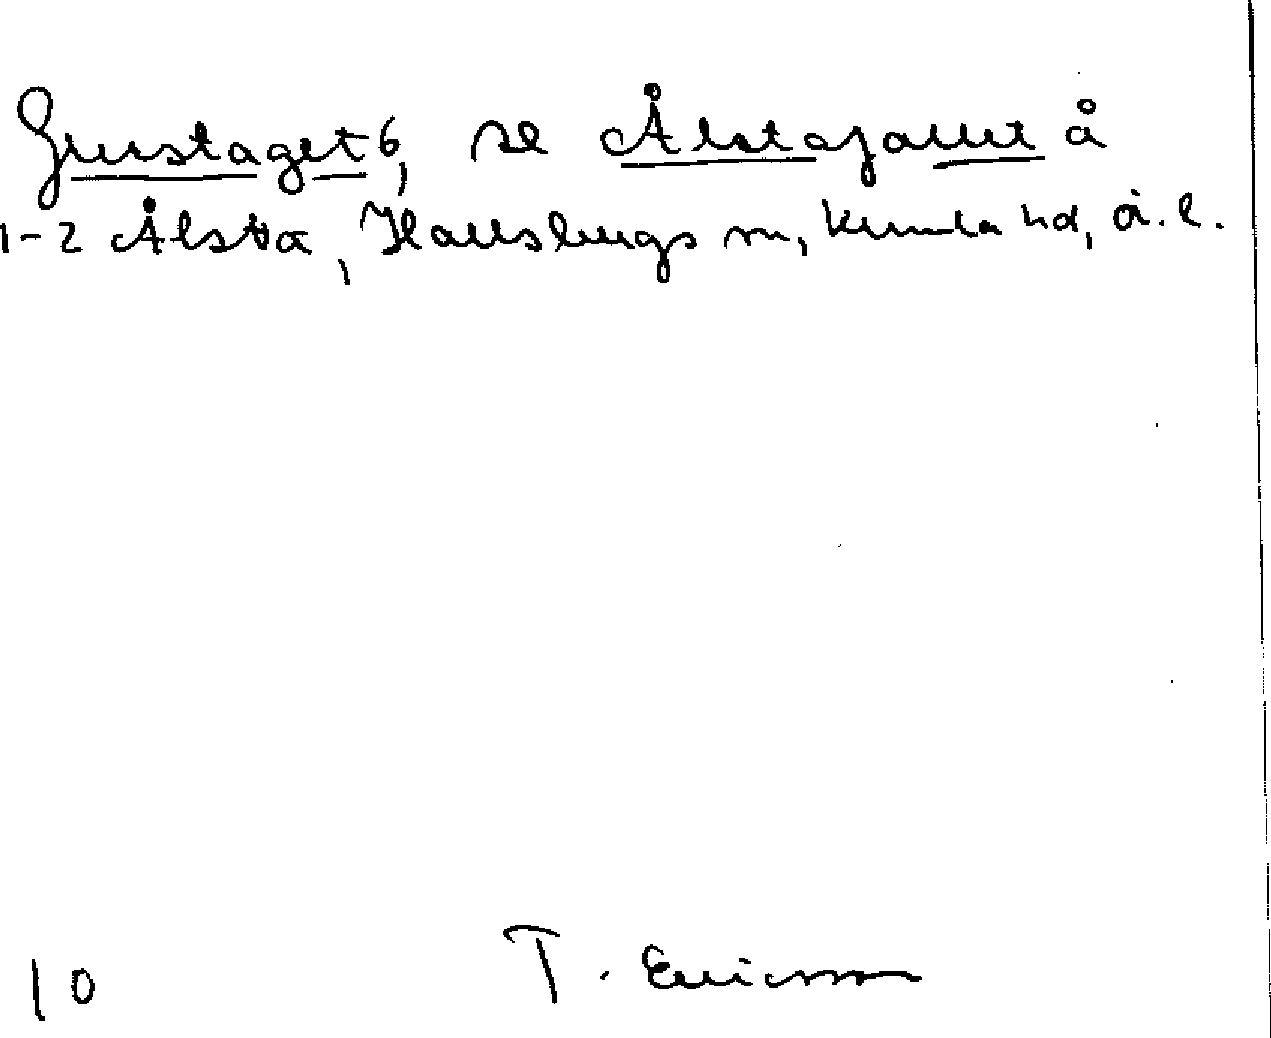 Grustaget 6, se Ålstafallet å
1-2 Ålsta, Hallsbergs sn, Kumla hd, Ö.l.
10 T. Ericsson